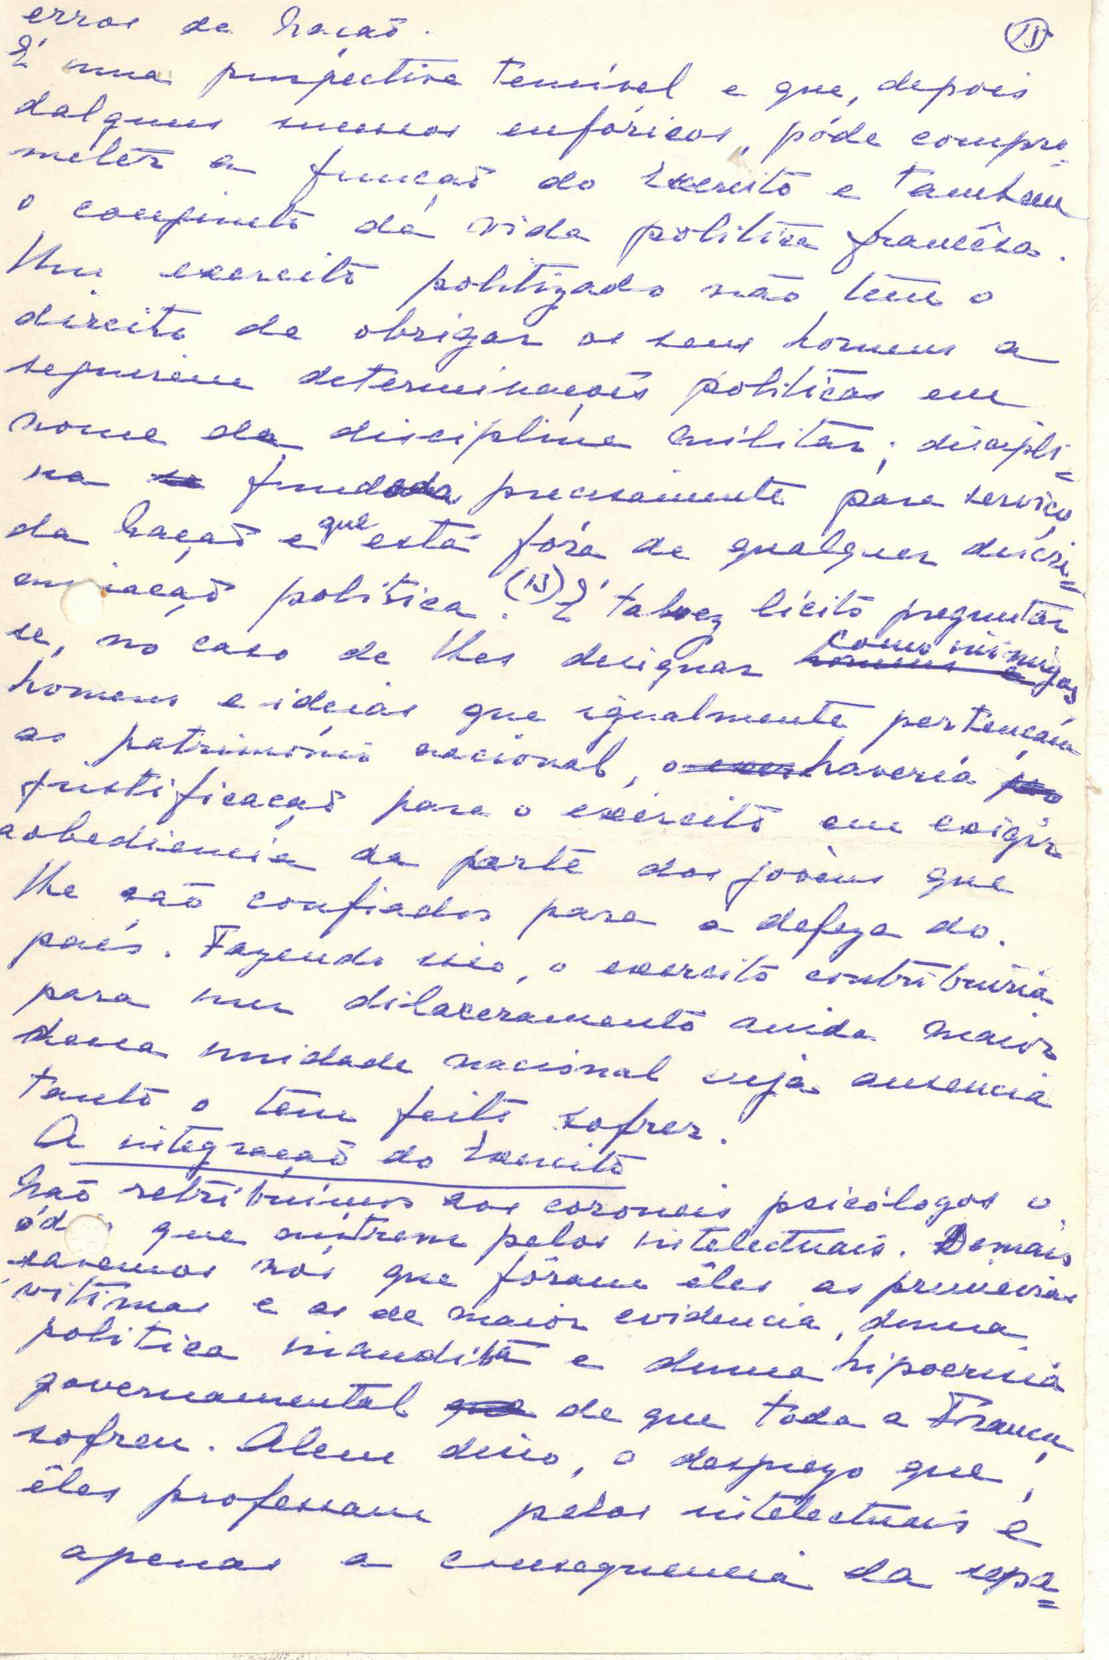 erros da Nação.
13
É uma perspectiva temível e que, depois
dalguns sucessos eufóricos, póde compro=
meter a função do Exercito e tambem
o conjunto da vida politica francêsa.
Um exercito politizado não tem o
direito de obrigar os seus homens a
seguirem determinações politicas em
nome da disciplina militar; discipli=
na fundada precisamente para serviço
da Nação e que está fóra de qualquer discri=
minação politica. (13) É talvez licito preguntar
se, no caso de lhes designar como inimigos
homens e ideias que igualmente pertençam
ao patrimonio nacional, haveria
justificação para o exército em exigir
aobediencia da parte dos jovens que
lhe são confiados para a defeza do
país. Fazendo isso, o exercito contribuiria
para um dilaceramento ainda maior
dessa unidade nacional cuja ausencia
tanto o tem feito sofrer.
A integração do Exercito
Não retribuimos aos coroneis psicólogos o
ód que nutrem pelos intelectuais. Demais
sabemos nós que fôram êles as primeiras
vitimas e as de maior evidencia, duma
politica inaudita e duma hipocrisia
governamental de que toda a França
sofreu. Alem disso, o desprezo que
êles professam pelos intelectuais é
apenas a consequencia da sepa=